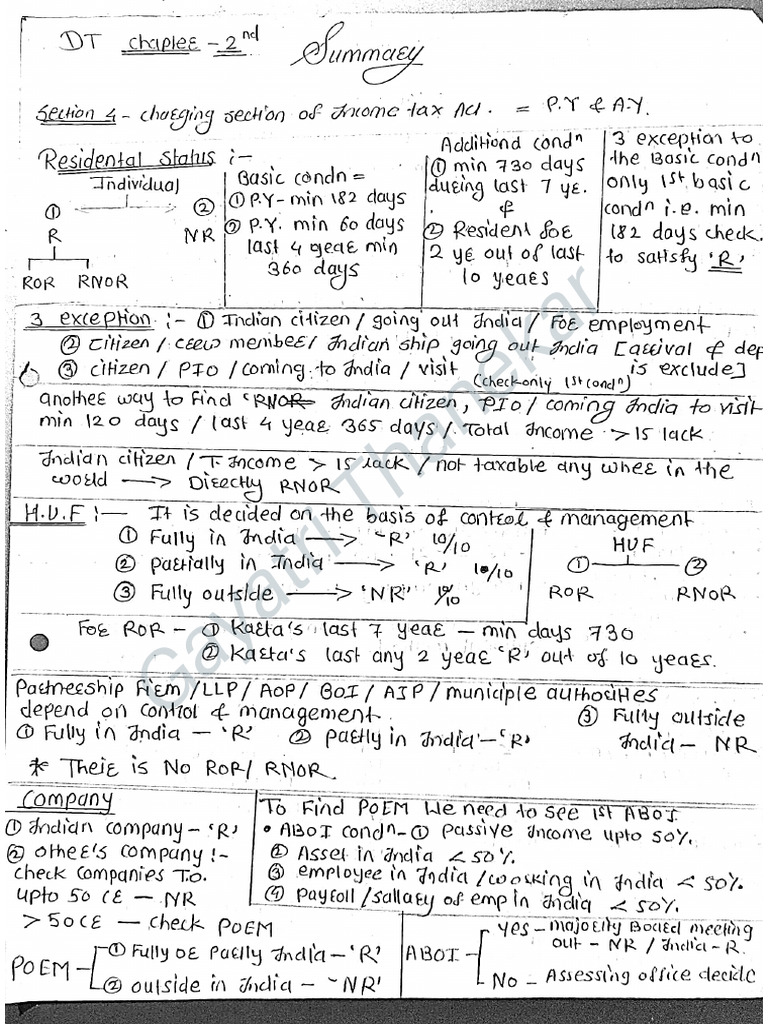 DT Chapter - 2nd
Summary
Section 4 - charging section of Income tax Act. = P.Y & A.Y.
Residental Status :-
Individual
① ②
R NR
ROR RNOR
Basic condn =
① P.Y - min 182 days
② P.Y. min 60 days
last 4 year min
360 days
Additional condn
① min 730 days
during last 7 yr.
&
② Resident for
2 yr out of last
10 years
3 exception to
the Basic condn
only 1st basic
condn i.e. min
182 days check
to satisfy 'R'
3 exception :- ① Indian citizen / going out India / For employment
② Citizen / crew member / Indian ship going out India [arrival & dep
is exclude]
③ citizen / PIO / coming to India / visit
(check only 1st condn)
another way to find 'RNOR Indian citizen, PIO / coming India to visit
min 120 days / last 4 year 365 days / Total Income > 15 lack
Indian citizen / T. Income > 15 lack / not taxable any where in the
world → Directly RNOR
H.U.F :- It is decided on the basis of control & management
① Fully in India → 'R' 10/10
② partially in India → 'R' 10/10
③ Fully outside → 'NR' 10/10
HUF
① ②
ROR RNOR
For ROR - ① Karta's last 7 year - min days 730
② Karta's last any 2 year 'R' out of 10 years.
Partnership Firm / LLP / AOP / BOI / AJP / municiple authorities
depend on control & management.
① Fully in India - 'R' ② partly in India - 'R' ③ Fully outside
India - NR
* Their is No ROR / RNOR.
Company
① Indian company - 'R'
② other's company :-
check companies T.O.
upto 50 cr - NR
> 50 cr - check POEM
POEM
① Fully or Partly India - 'R'
② outside in India - 'NR'
To Find POEM we need to see 1st ABOI
• ABOI condn - ① passive income upto 50%.
② Asset in India < 50%.
③ employee in India / working in India < 50%.
④ payroll / sallary of emp in India < 50%.
ABOI
yes - majority Board meeting
out - NR / India - R.
No - Assessing office decide
Gayatri Thanekar